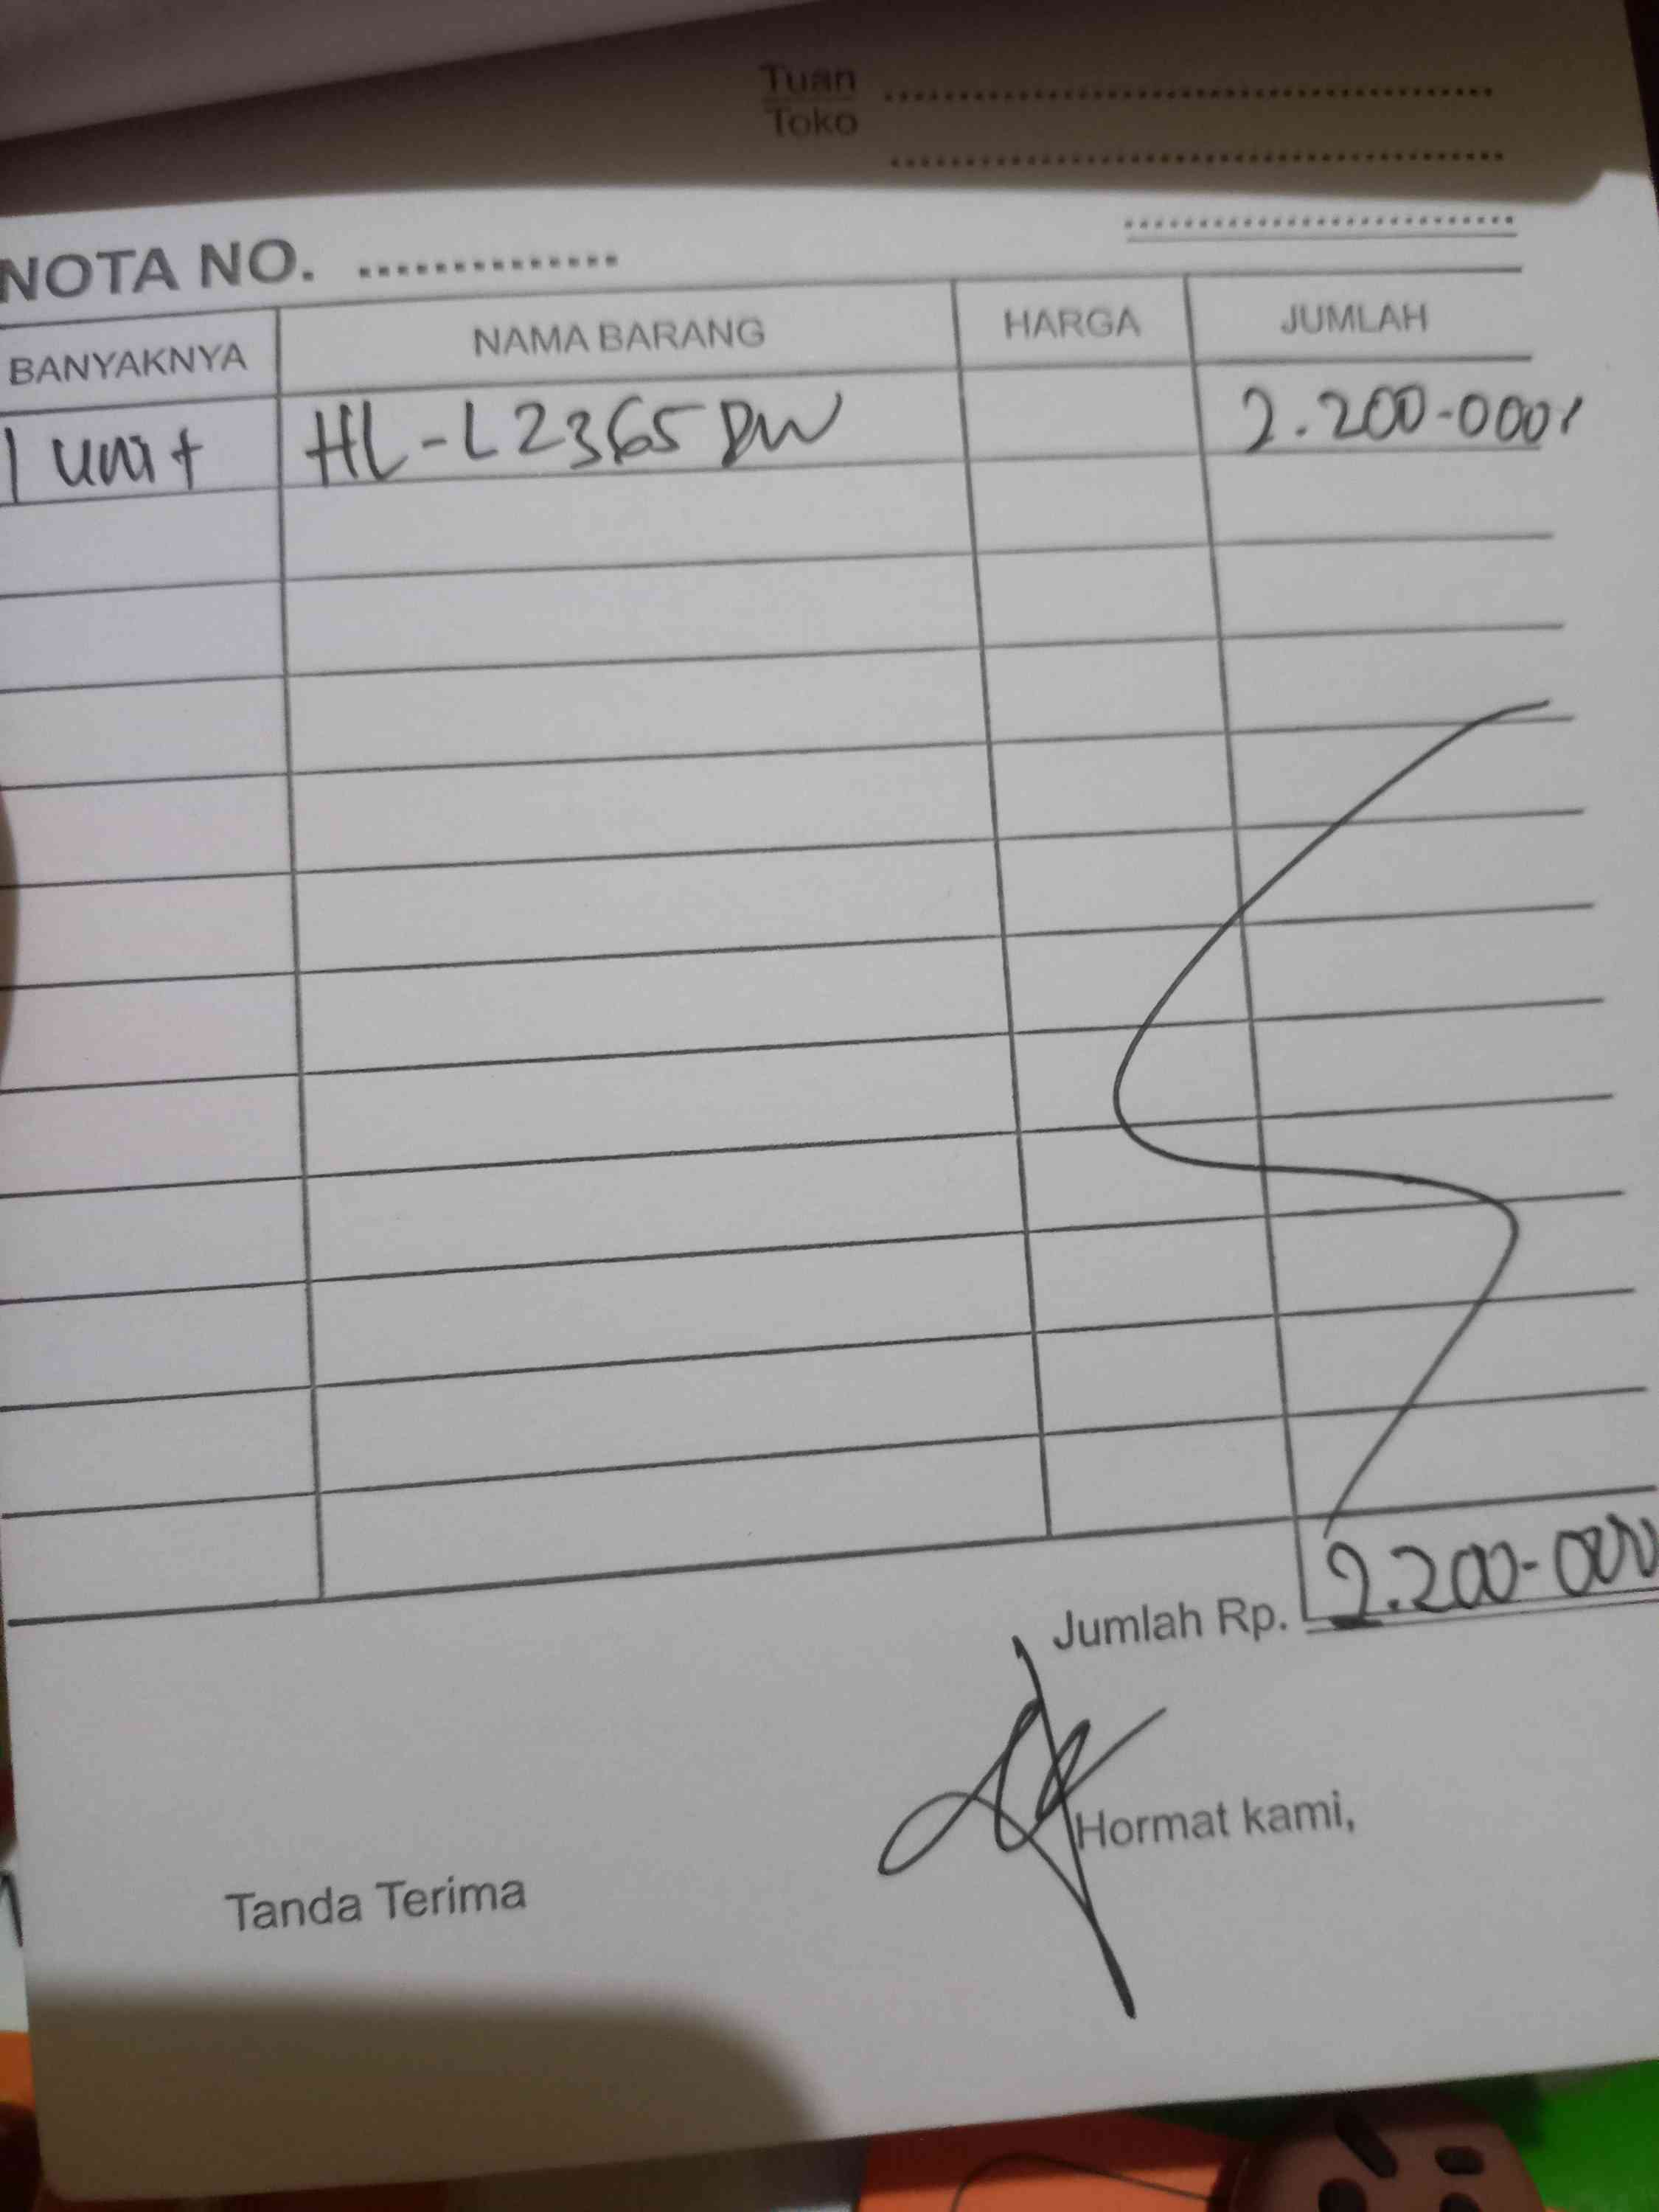 Tuan
Toko
NOTA NO.
BANYAKNYA NAMA BARANG HARGA JUMLAH
1 unit HL-L2365DW 2.200-000,
Jumlah Rp. 2.200-000
Hormat kami,
Tanda Terima